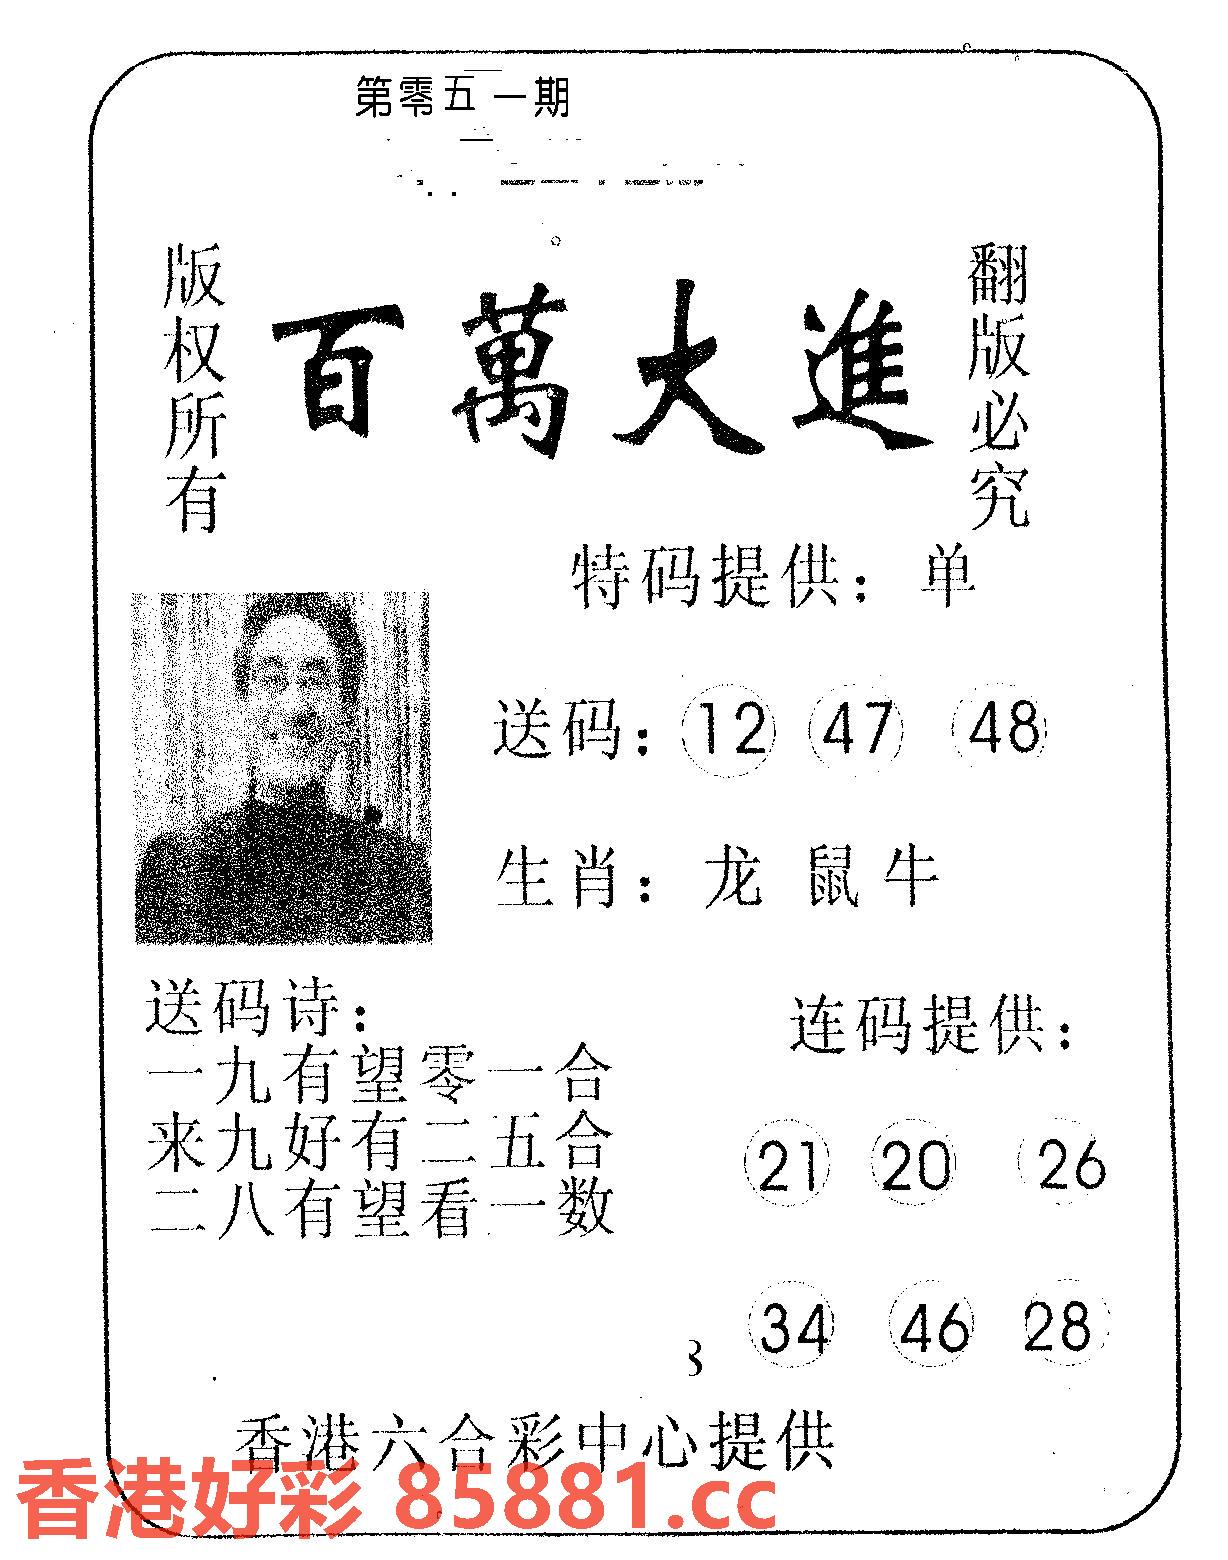 第零五一期
版权所有
百萬大進
翻版必究
特码提供：单
送码：12 47 48
生肖：龙 鼠 牛
送码诗：
一九有望零一合
来九好有二五合
二八有望看一数
连码提供：
21 20 26
34 46 28
香港六合彩中心提供
香港好彩 85881.cc